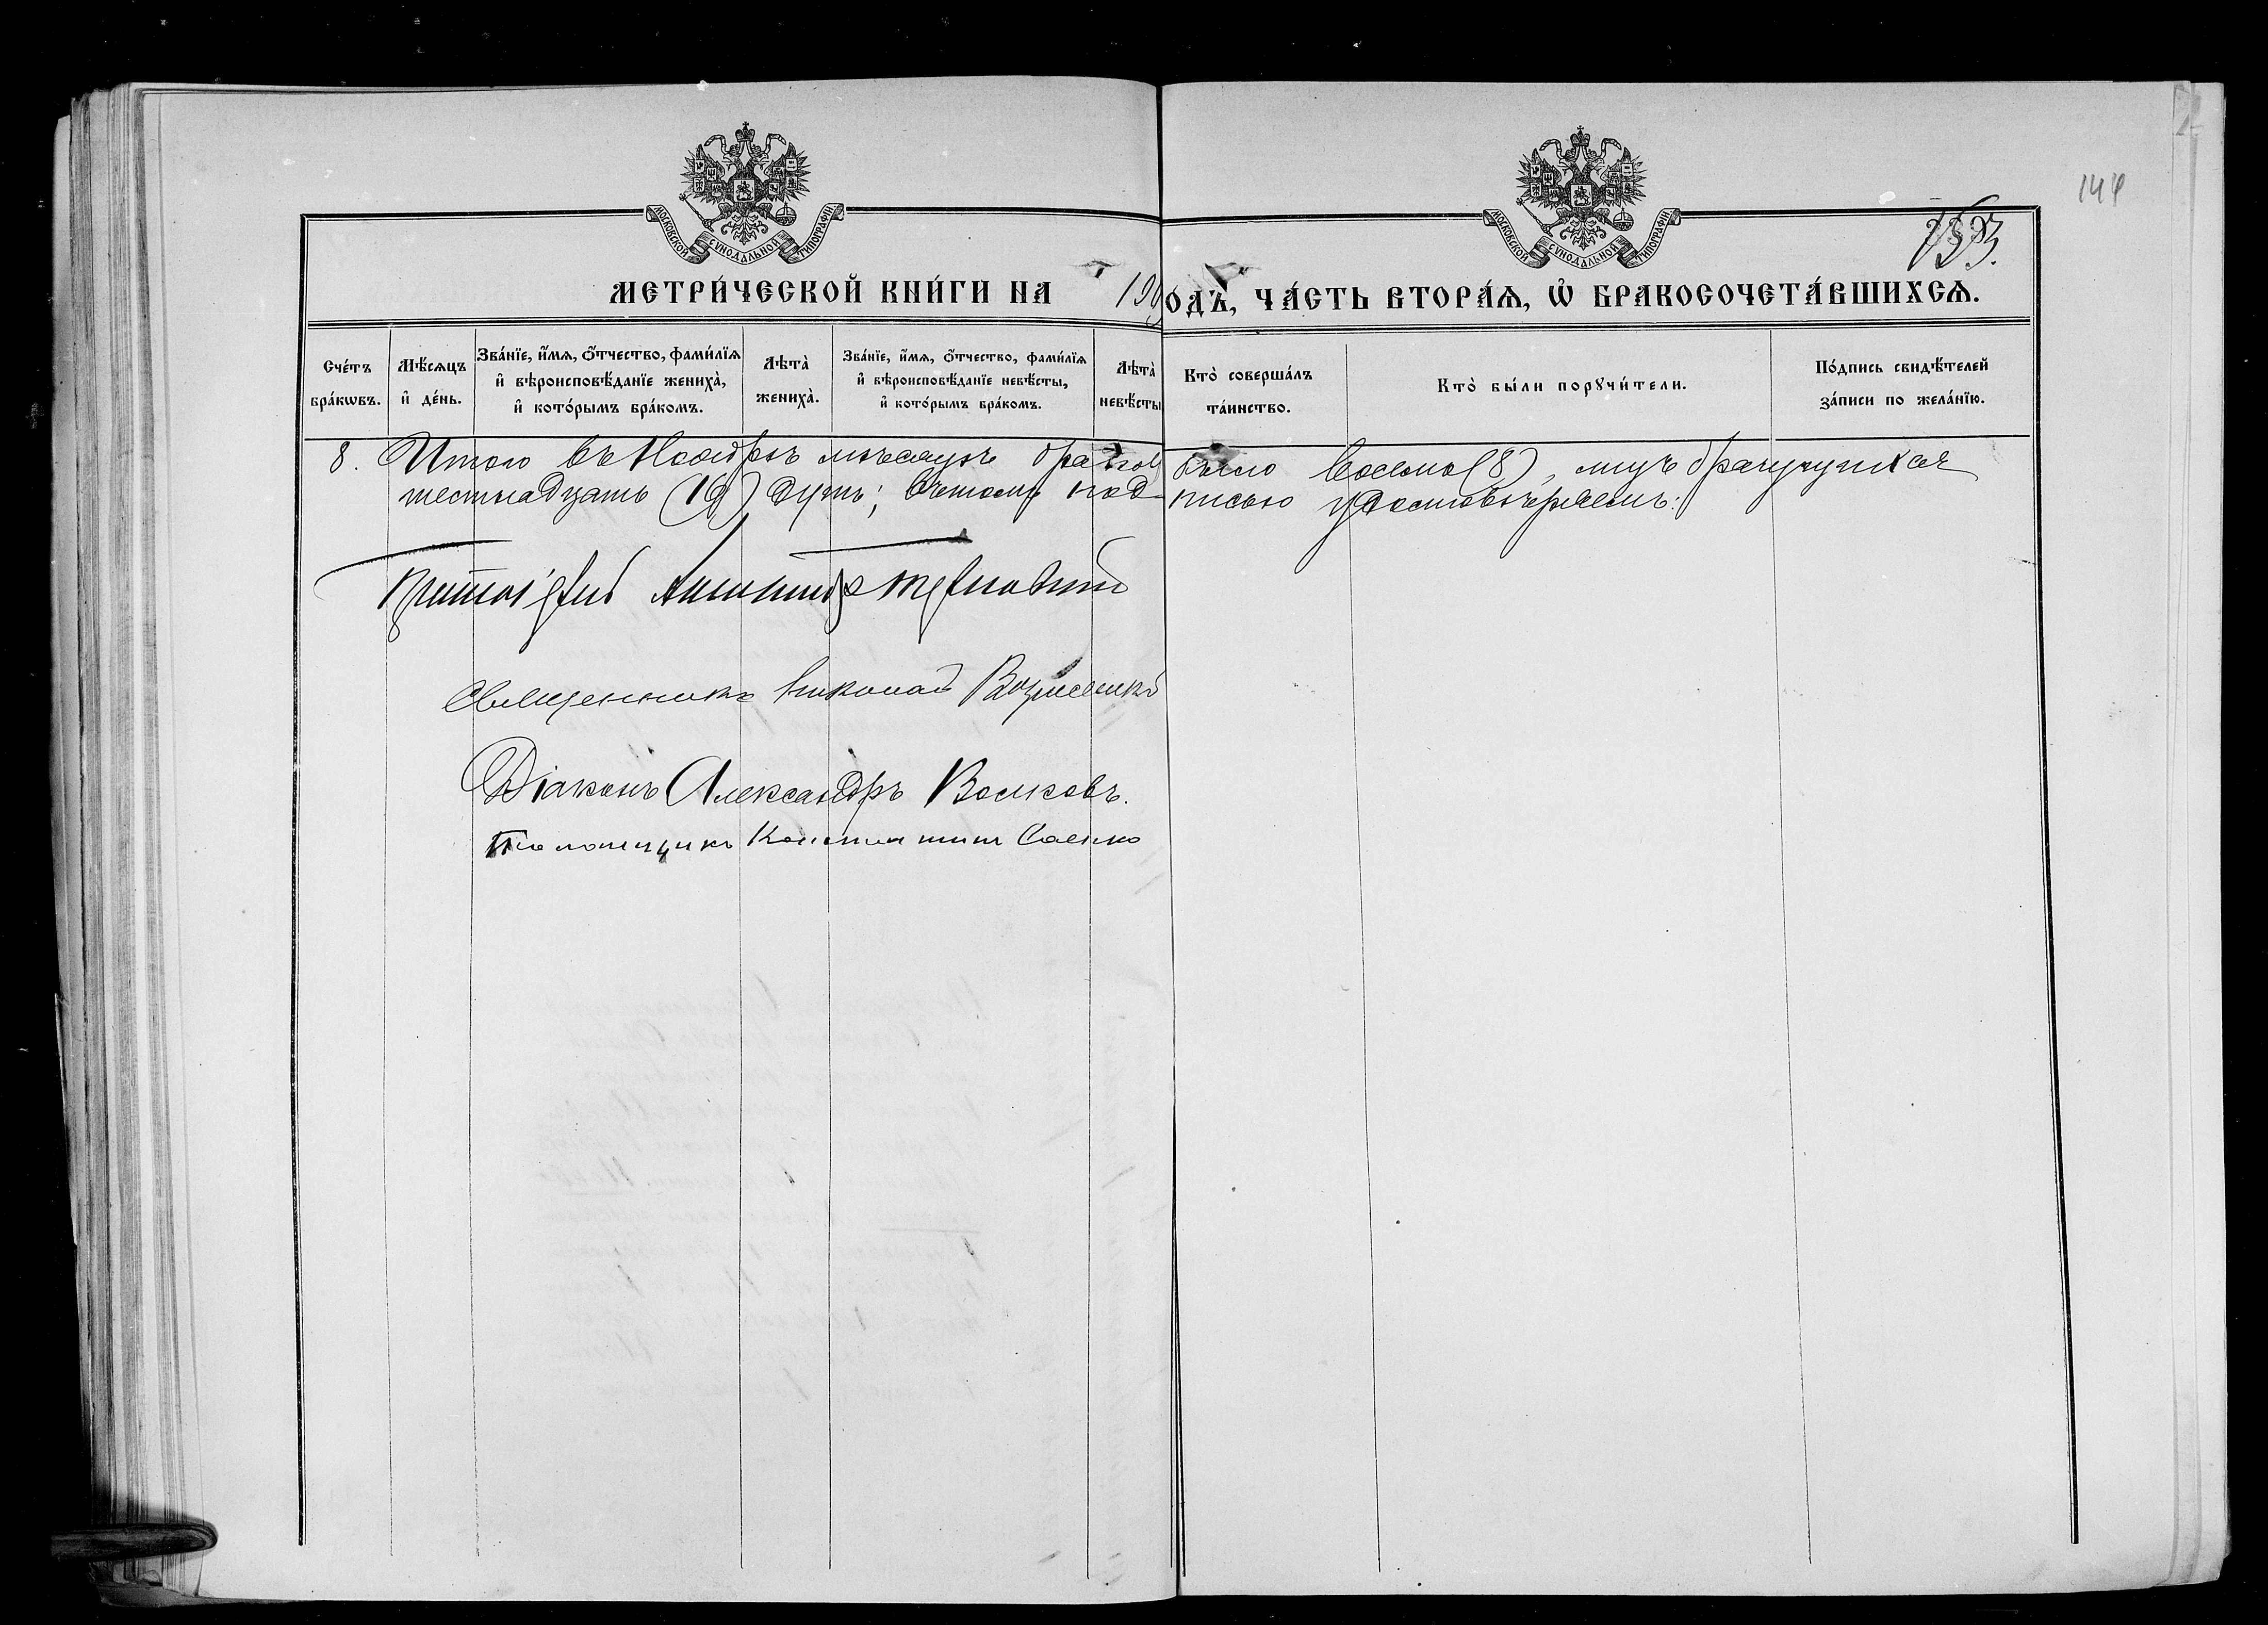 144
МОСКОВСКОЙ СѴНОДАЛЬНОЙ ТИПОГРАФІИ
МОСКОВСКОЙ СѴНОДАЛЬНОЙ ТИПОГРАФІИ
МЕТРИ́ЧЕСКОЙ КНИ́ГИ НА 190 ОДЪ, ЧА́СТЬ ВТОРА́Ѧ, Ѽ БРАКОСОЧЕТА́ВШИХСѦ.
Сче́тъ бра́кѡвъ.
Мѣ́сѧцъ и҆ де́нь.
Зва́нїе, и҆́мѧ, ѻ҆́тчество, фами́лїѧ и҆ вѣроисповѣ́данїе жениха̀, и҆ кото́рымъ бра́комъ.
Лѣта̀ жениха̀.
Зва́нїе, и҆́мѧ, ѻ҆́тчество, фами́лїѧ и҆ вѣроисповѣ́данїе невѣ́сты, и҆ кото́рымъ бра́комъ.
Лѣта̀ невѣ́сты
Кто̀ соверша́лъ та́инство.
Кто̀ бы́ли порꙋчи́тели.
По́дпись свидѣ́телей за́писи по жела́нїю.
8. Итого въ Ноябрѣ мѣсяцѣ браков было восемь (8), лицъ брачущихся
шестнадцать (16) душъ; въ томъ под-писью удостовѣряемъ:
Протоіерей
Священникъ Николай Вознесенскій
Діаконъ Александръ Волковъ.
Псаломщикъ Константинъ Саенко